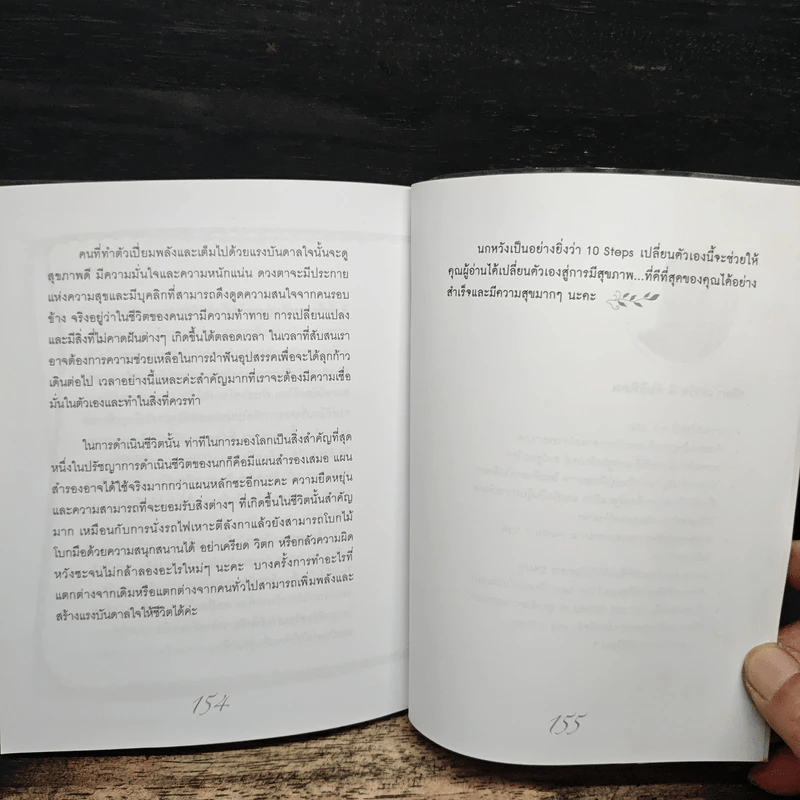 คนที่ทำตัวเปี่ยมพลังและเต็มไปด้วยแรงบันดาลใจนั้นจะดู
สุขภาพดี มีความมั่นใจและความหนักแน่น ดวงตาจะมีประกาย
แห่งความสุขและมีบุคลิกที่สามารถดึงดูดความสนใจจากคนรอบ
ข้าง จริงอยู่ว่าในชีวิตของคนเรามีความท้าทาย การเปลี่ยนแปลง
และมีสิ่งที่ไม่คาดฝันต่างๆ เกิดขึ้นได้ตลอดเวลา ในเวลาที่สับสนเรา
อาจต้องการความช่วยเหลือในการฝ่าฟันอุปสรรคเพื่อจะได้ลุกก้าว
เดินต่อไป เวลาอย่างนี้แหละค่ะสำคัญมากที่เราจะต้องมีความเชื่อ
มั่นในตัวเองและทำในสิ่งที่ควรทำ
ในการดำเนินชีวิตนั้น ท่าทีในการมองโลกเป็นสิ่งสำคัญที่สุด
หนึ่งในปรัชญาการดำเนินชีวิตของนกก็คือมีแผนสำรองเสมอ แผน
สำรองอาจได้ใช้จริงมากกว่าแผนหลักซะอีกนะคะ ความยืดหยุ่น
และความสามารถที่จะยอมรับสิ่งต่างๆ ที่เกิดขึ้นในชีวิตนั้นสำคัญ
มาก เหมือนกับการนั่งรถไฟเหาะตีลังกาแล้วยังสามารถโบกไม้
โบกมือด้วยความสนุกสนานได้ อย่าเครียด วิตก หรือกลัวความผิด
หวังซะจนไม่กล้าลองอะไรใหม่ๆ นะคะ บางครั้งการทำอะไรที่
แตกต่างจากเดิมหรือแตกต่างจากคนทั่วไปสามารถเพิ่มพลังและ
สร้างแรงบันดาลใจให้ชีวิตได้ค่ะ
154
นกหวังเป็นอย่างยิ่งว่า 10 Steps เปลี่ยนตัวเองนี้จะช่วยให้
คุณผู้อ่านได้เปลี่ยนตัวเองสู่การมีสุขภาพ...ที่ดีที่สุดของคุณได้อย่าง
สำเร็จและมีความสุขมากๆ นะคะ
155